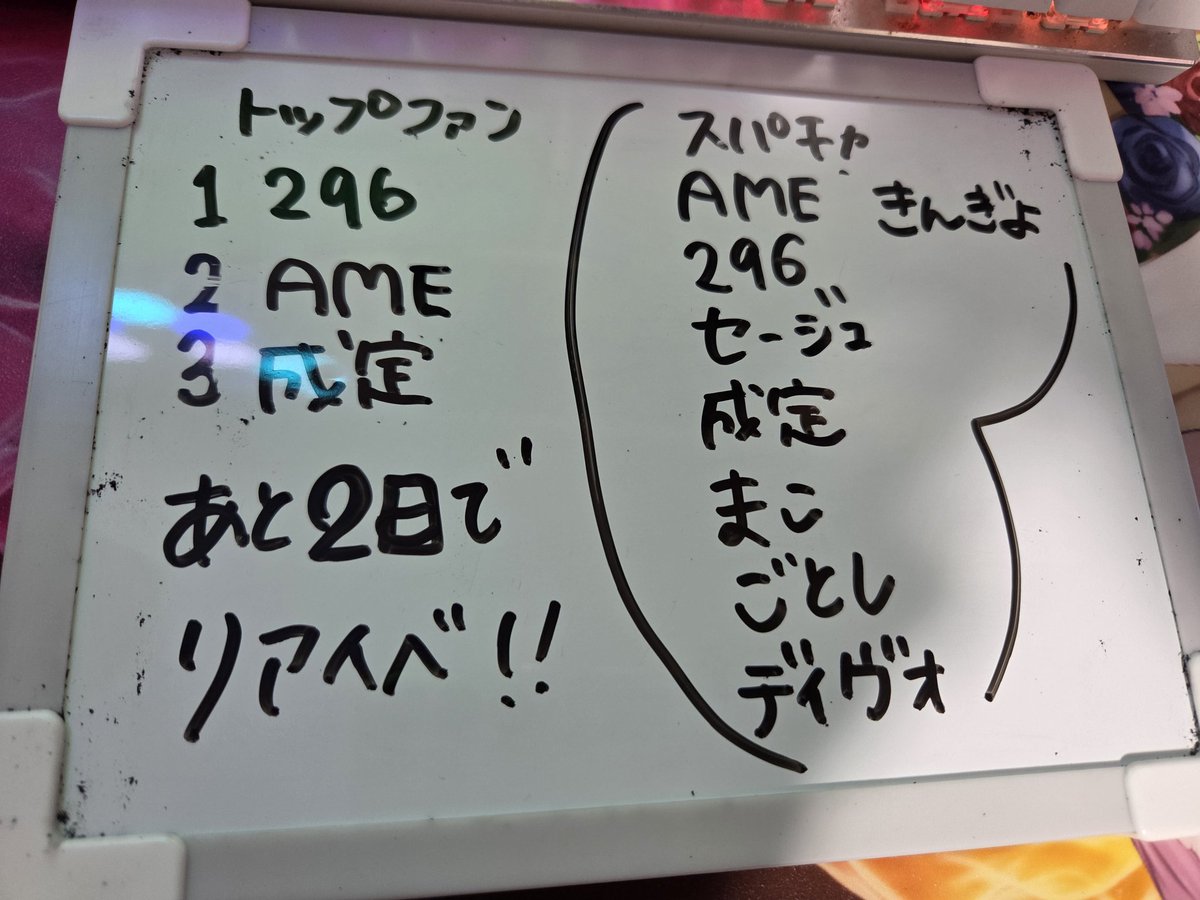 トップファン
1 296
2 AME
3 成定
あと2日で
リアイベ!!
スパチャ
AME きんぎょ
296
セージュ
成定
まこ
ごとし
ディヴォ